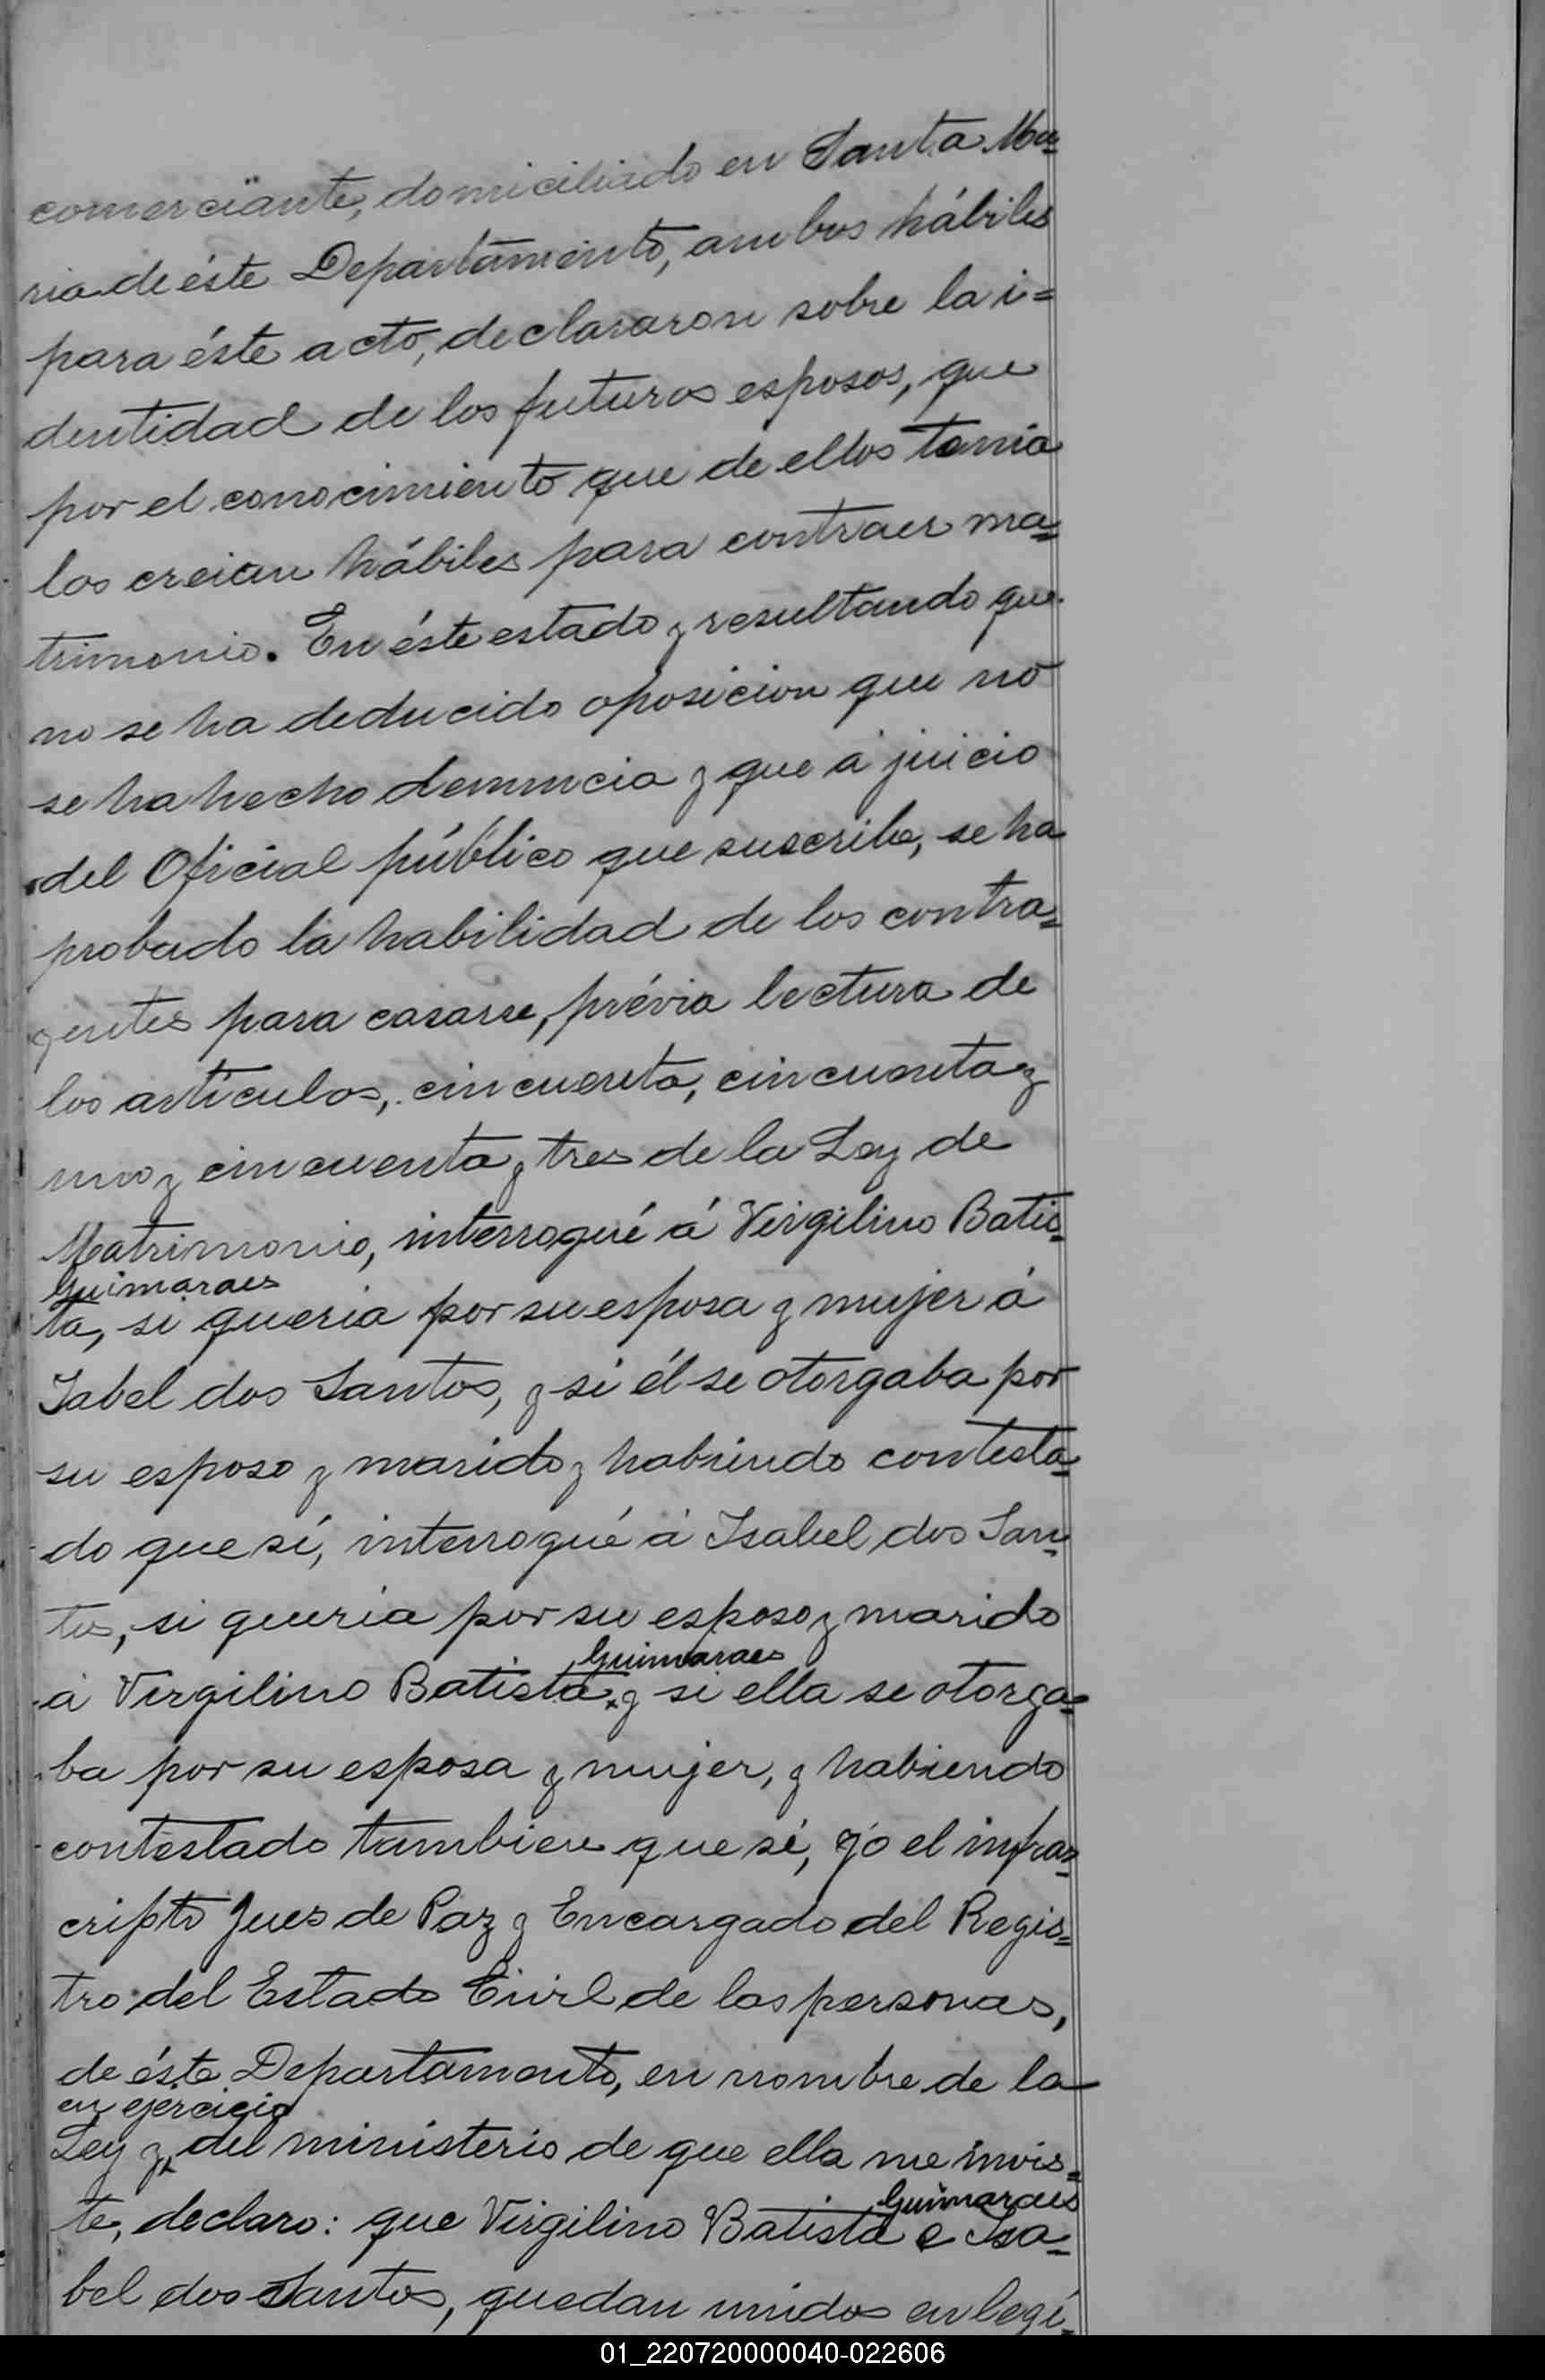 comerciante, domiciliado en Santa Ma=
ria de éste Departamento, ambos hábiles
para éste acto, declararon sobre la i=
dentidad de los futuros esposos, que
por el conocimiento que de ellos tenia
los creian hábiles para contraer ma=
trimonio. En éste estado y resultando que
no se ha deducido oposicion que no
se ha hecho denuncia y que á juicio
del Oficial público que suscribe, se ha
probado la habilidad de los contra=
yentes para casarse, prévia lectura de
los artículos, cincuenta, cincuenta y
uno y cincuenta y tres de la Ley de
Matrimonio, interrogué á Virgilino Batis=
Guimaraes
ta, si queria por su esposa y mujer á
Isabel dos Santos, y si él se otorgaba por
su esposo y marido y habiendo contesta=
do que sí, interrogué á Isabel dos San=
tos, si queria por su esposo y marido
Guimaraes
á Virgilino Batista x y si ella se otorga=
ba por su esposa y mujer, y habiendo
contestado tambien que sí, yo el infras=
cripto Jues de Paz y Encargado del Regis=
tro del Estado Civil de las personas,
de éste Departamento, en nombre de la
en ejercicio
Ley y x del ministerio de que ella me invis=
Guimaraes
te, declaro: que Virgilino Batista e Isa=
bel dos Santos, quedan unidos en legí=
01_220720000040-022606